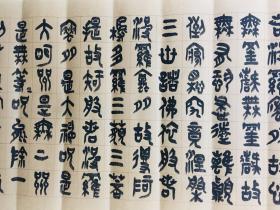 罣礙無罣礙故
無有恐怖遠離顛
倒夢想究竟涅槃
三世諸佛依般若
波羅蜜多故得阿
耨多羅三藐三菩
提故知般若波羅
蜜多是大神咒是
大明咒是無上咒
是無等等咒能除一